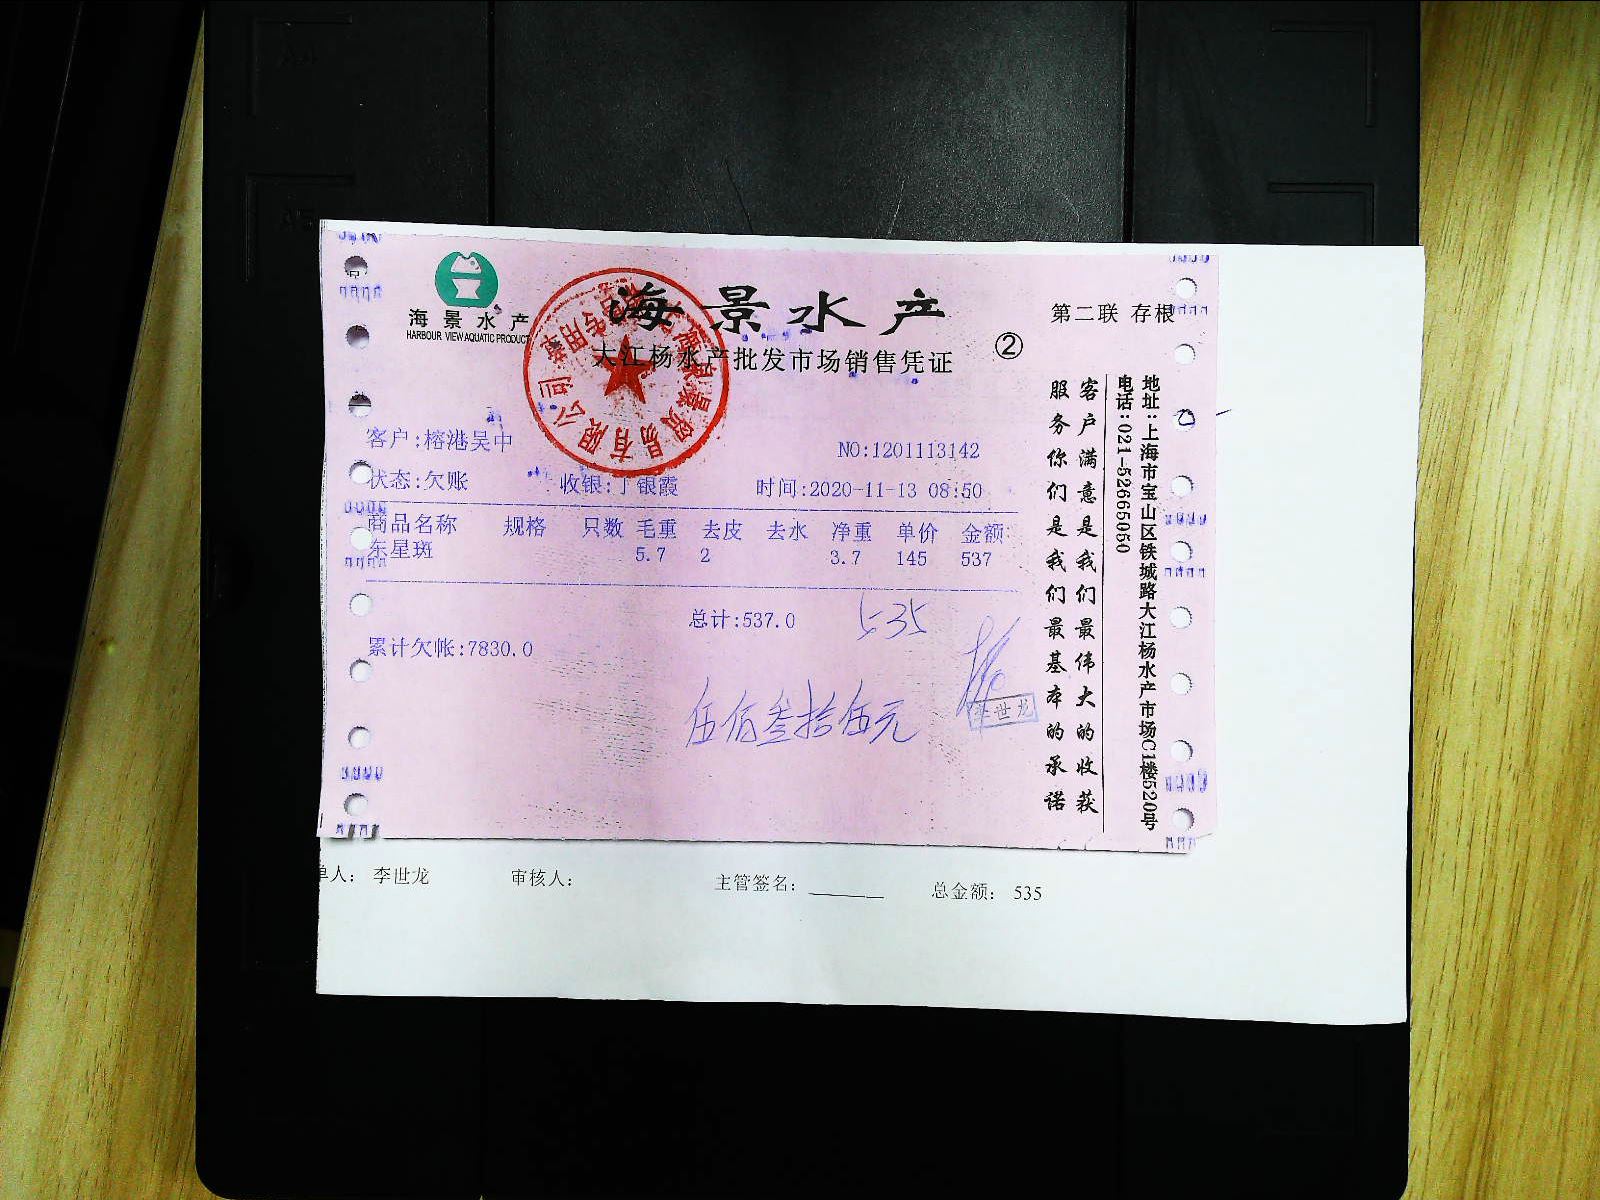 海景水产
HARBOUR VIEW AQUATIC PRODUCT
海景水产
大江杨水产批发市场销售凭证
②
第二联 存根
客户:榕港吴中
NO:1201113142
状态:欠账 收银:丁银霞 时间:2020-11-13 08:50
商品名称 规格 只数 毛重 去皮 去水 净重 单价 金额
东星斑 5.7 2 3.7 145 537
总计:537.0
535
累计欠帐:7830.0
伍佰叁拾伍元
李世龙
客户满意是我们最伟大的收获
服务你们是我们最基本的承诺
地址:上海市宝山区铁城路大江杨水产市场C1楼520号
电话:021-52665050
单人: 李世龙 审核人: 主管签名: 总金额: 535